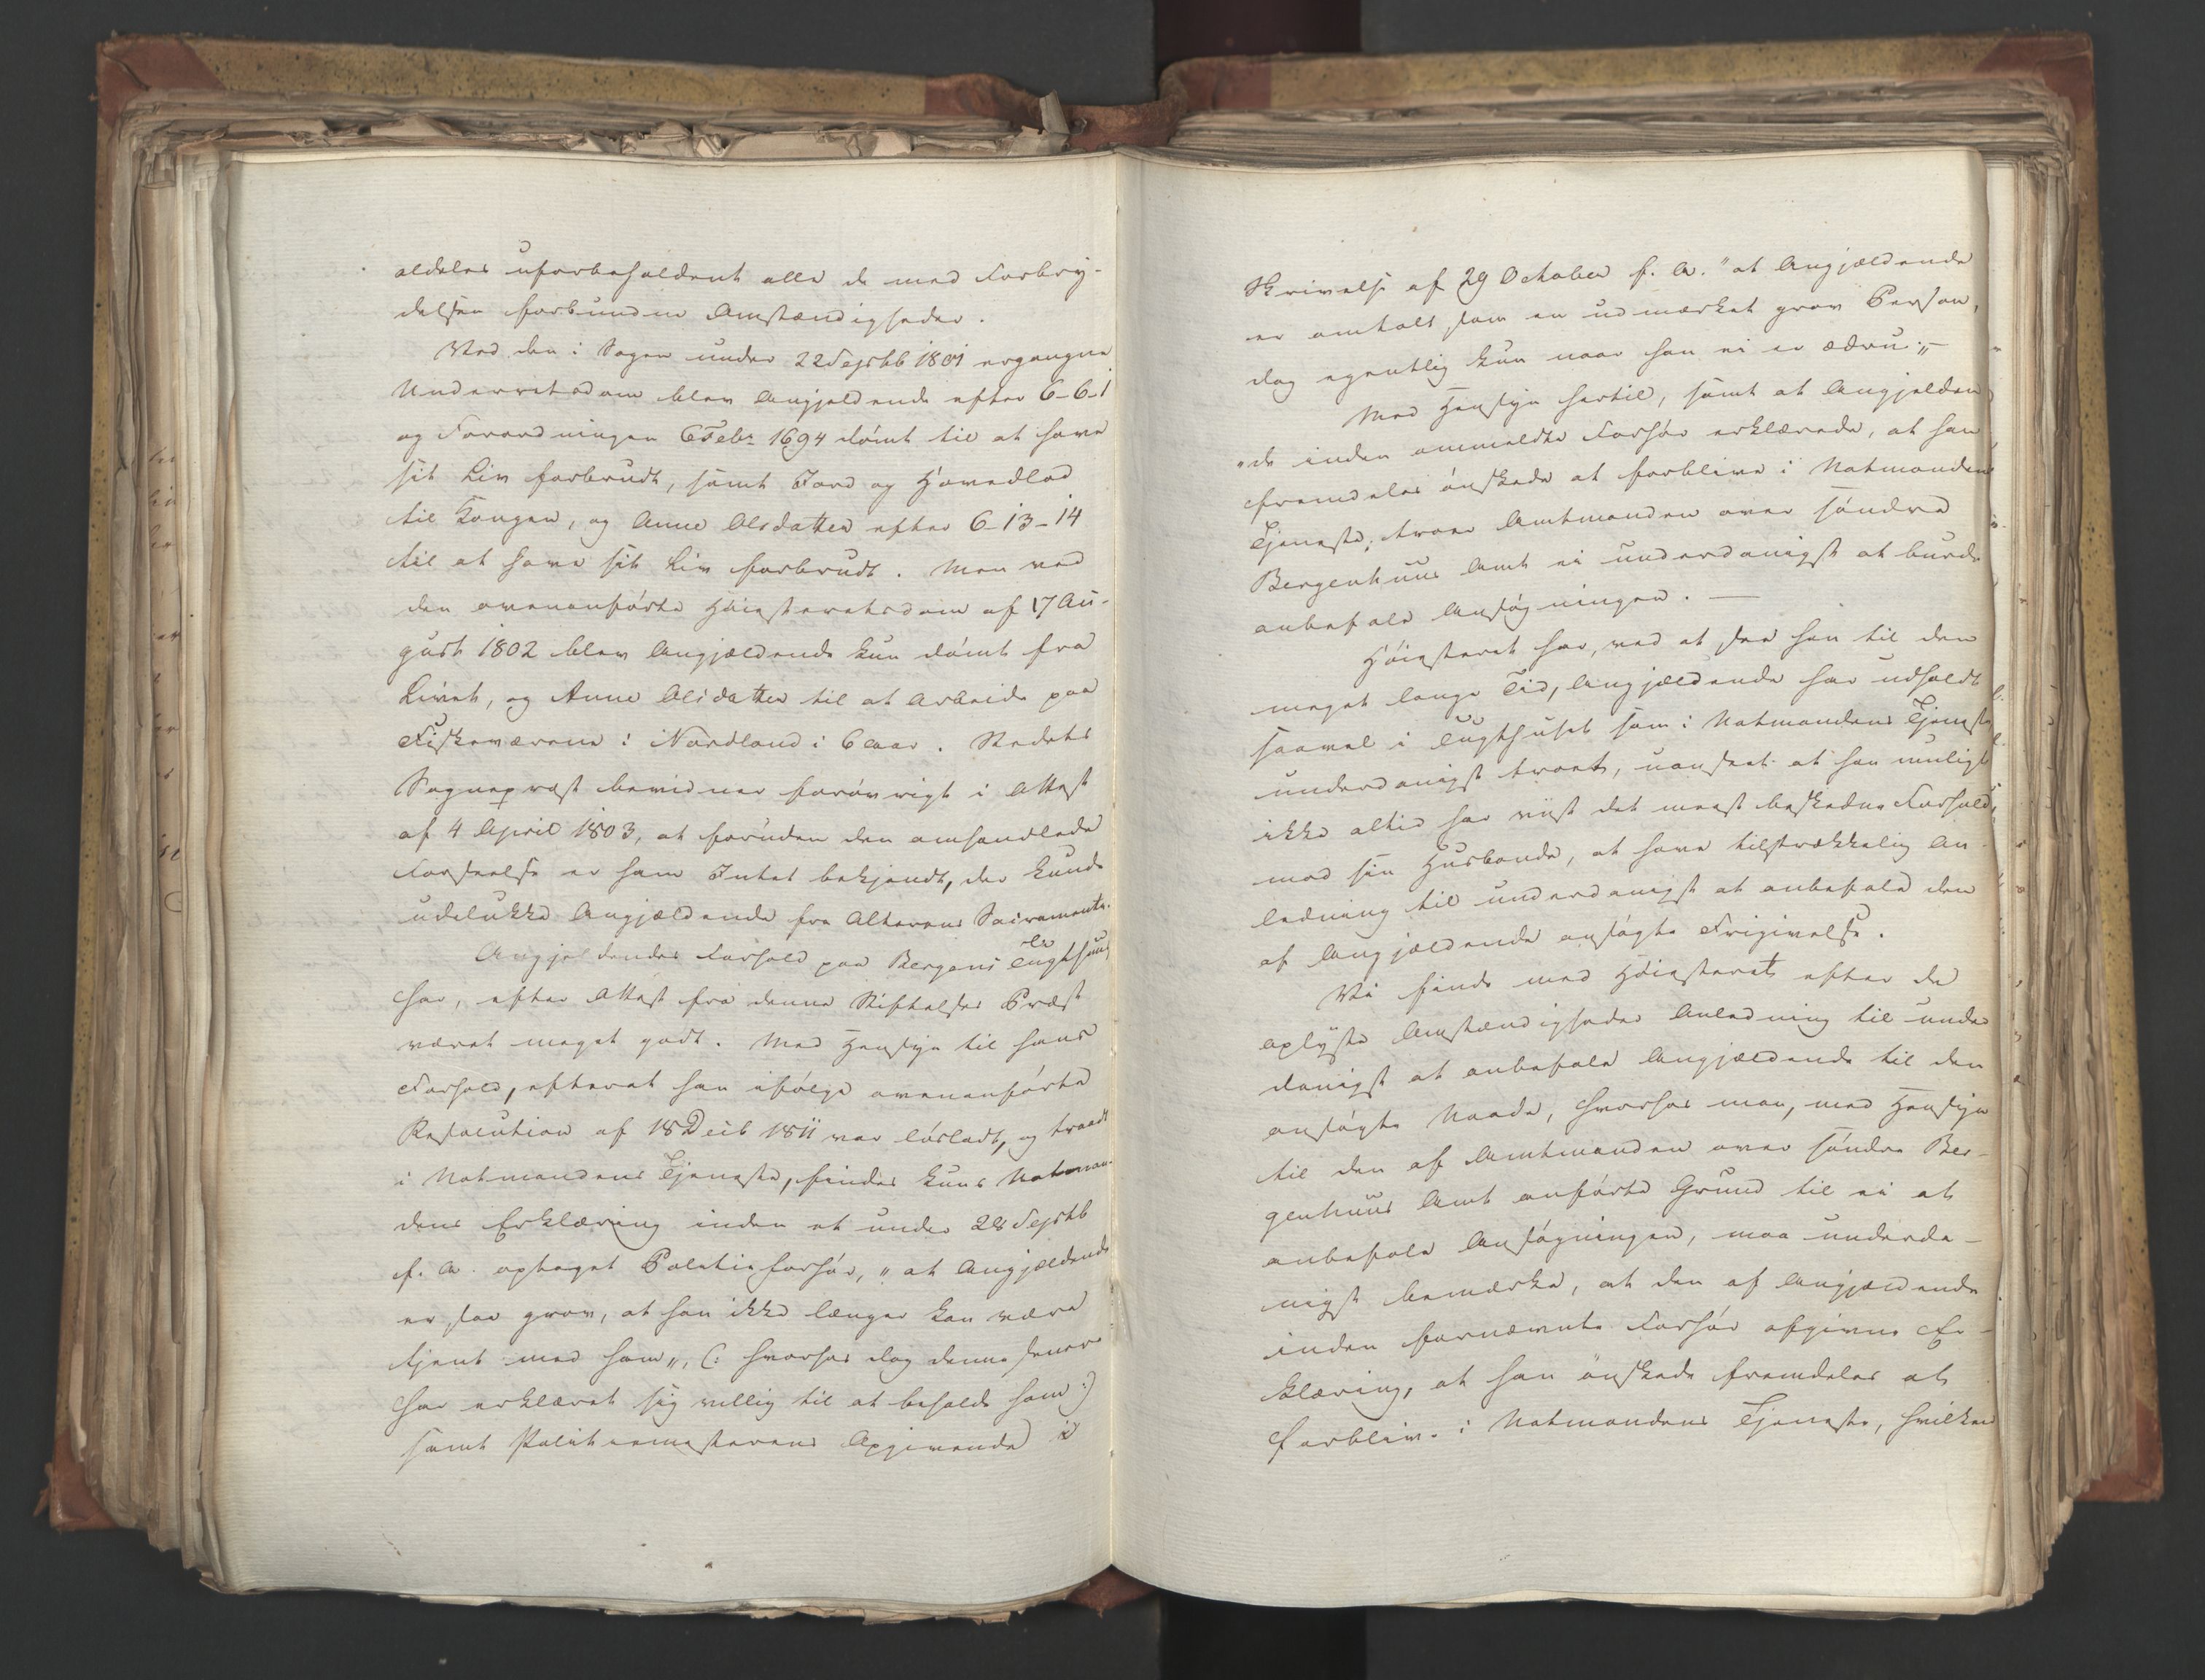 aldeles uforbeholdent alle de med Forbry-
delsen forbundne Omstændigheder.
Ved den i Sagen under 22 Septbb 1801 ergangne
Underretsdom blev Angjældende efter 6-6-1
og Forordningen 6 Febr 1694 dømt til at have
sit Liv forbrudt, samt Jord og Hovedlod
til Kongen, og Anne Olsdatter efter 6-13-14
til at have sit Liv forbrudt. Men ved
den ovenanførte Høiesteretsdom af 17 Au-
gust 1802 blev Angjældende kun dømt fra
Livet, og Anne Olsdatter til at arbeide paa
Fiskeværene i Nordland i 6 Aar. Stedets
Sognepræst bevidner forøvrigt i Attest
af 4 April 1803, at foruden den omhandlede
Forseelse er ham Intet bekjendt, der kunde
udelukke Angjældende fra Alterens Sacramente.
Angjældendes Forhold paa Bergens Tugthuus
har, efter Attest fra denne Stiftelses Præst
været meget godt. Med Hensyn til hans
Forhold, efterat han ifølge ovenanførte
Resolution af 18 Decb 1811 var løsladt, og traadt
i Natmandens Tjeneste, findes kuns Natman-
dens Erklæring inden et under 28 Septbb
f. A. optaget Politieforhør, "at Angjældende
er saa grov, at han ikke længer kan være
tjent med ham", (: hvorhos dog denne senere
har erklæret sig villig til at beholde ham :)
samt Politiemesterens Opgivende i
Skrivelse af 29 October f. A. "at Angjældende
er omtalt som en udmærket grov Person,
dog egentlig kun naar han ei er ædru; "
Med Hensyn hertil, samt at Angjælden
"de inden ommeldte Forhør erklærede, at han
fremdeles ønskede at forblive i Natmandens
Tjeneste, troer Amtmanden over søndre
Bergenhuus Amt ei underdanigst at burde
anbefale Ansøgningen. —
Høiesteret har, ved at see hen til den
meget lange Tid, Angjældende har udholdt
saavel i Tugthuset som i Natmandens Tjeneste
underdanigst troet, uanseet at han muligt
ikke altid har viist det meest beskedne Forhold
mod sin Husbonde, at have tilstrækkelig An-
ledning til underdanigst at anbefale den
af Angjældende ansøgte Frigivelse.
Vi finde med Høiesteret efter de
oplyste Omstændigheder Anledning til under
danigst at anbefale Angjældende til den
ansøgte Naade, hvorhos man, med Hensyn
til den af Amtmanden over søndre Ber-
genhuus Amt anførte Grund til ei at
anbefale Ansøgningen, maa underda-
nigst bemærke, at den af Angjældende
inden fornævnte Forhør afgivne Er-
klæring, at han ønskede fremdeles at
forblive i Natmandens Tjeneste, hvilken